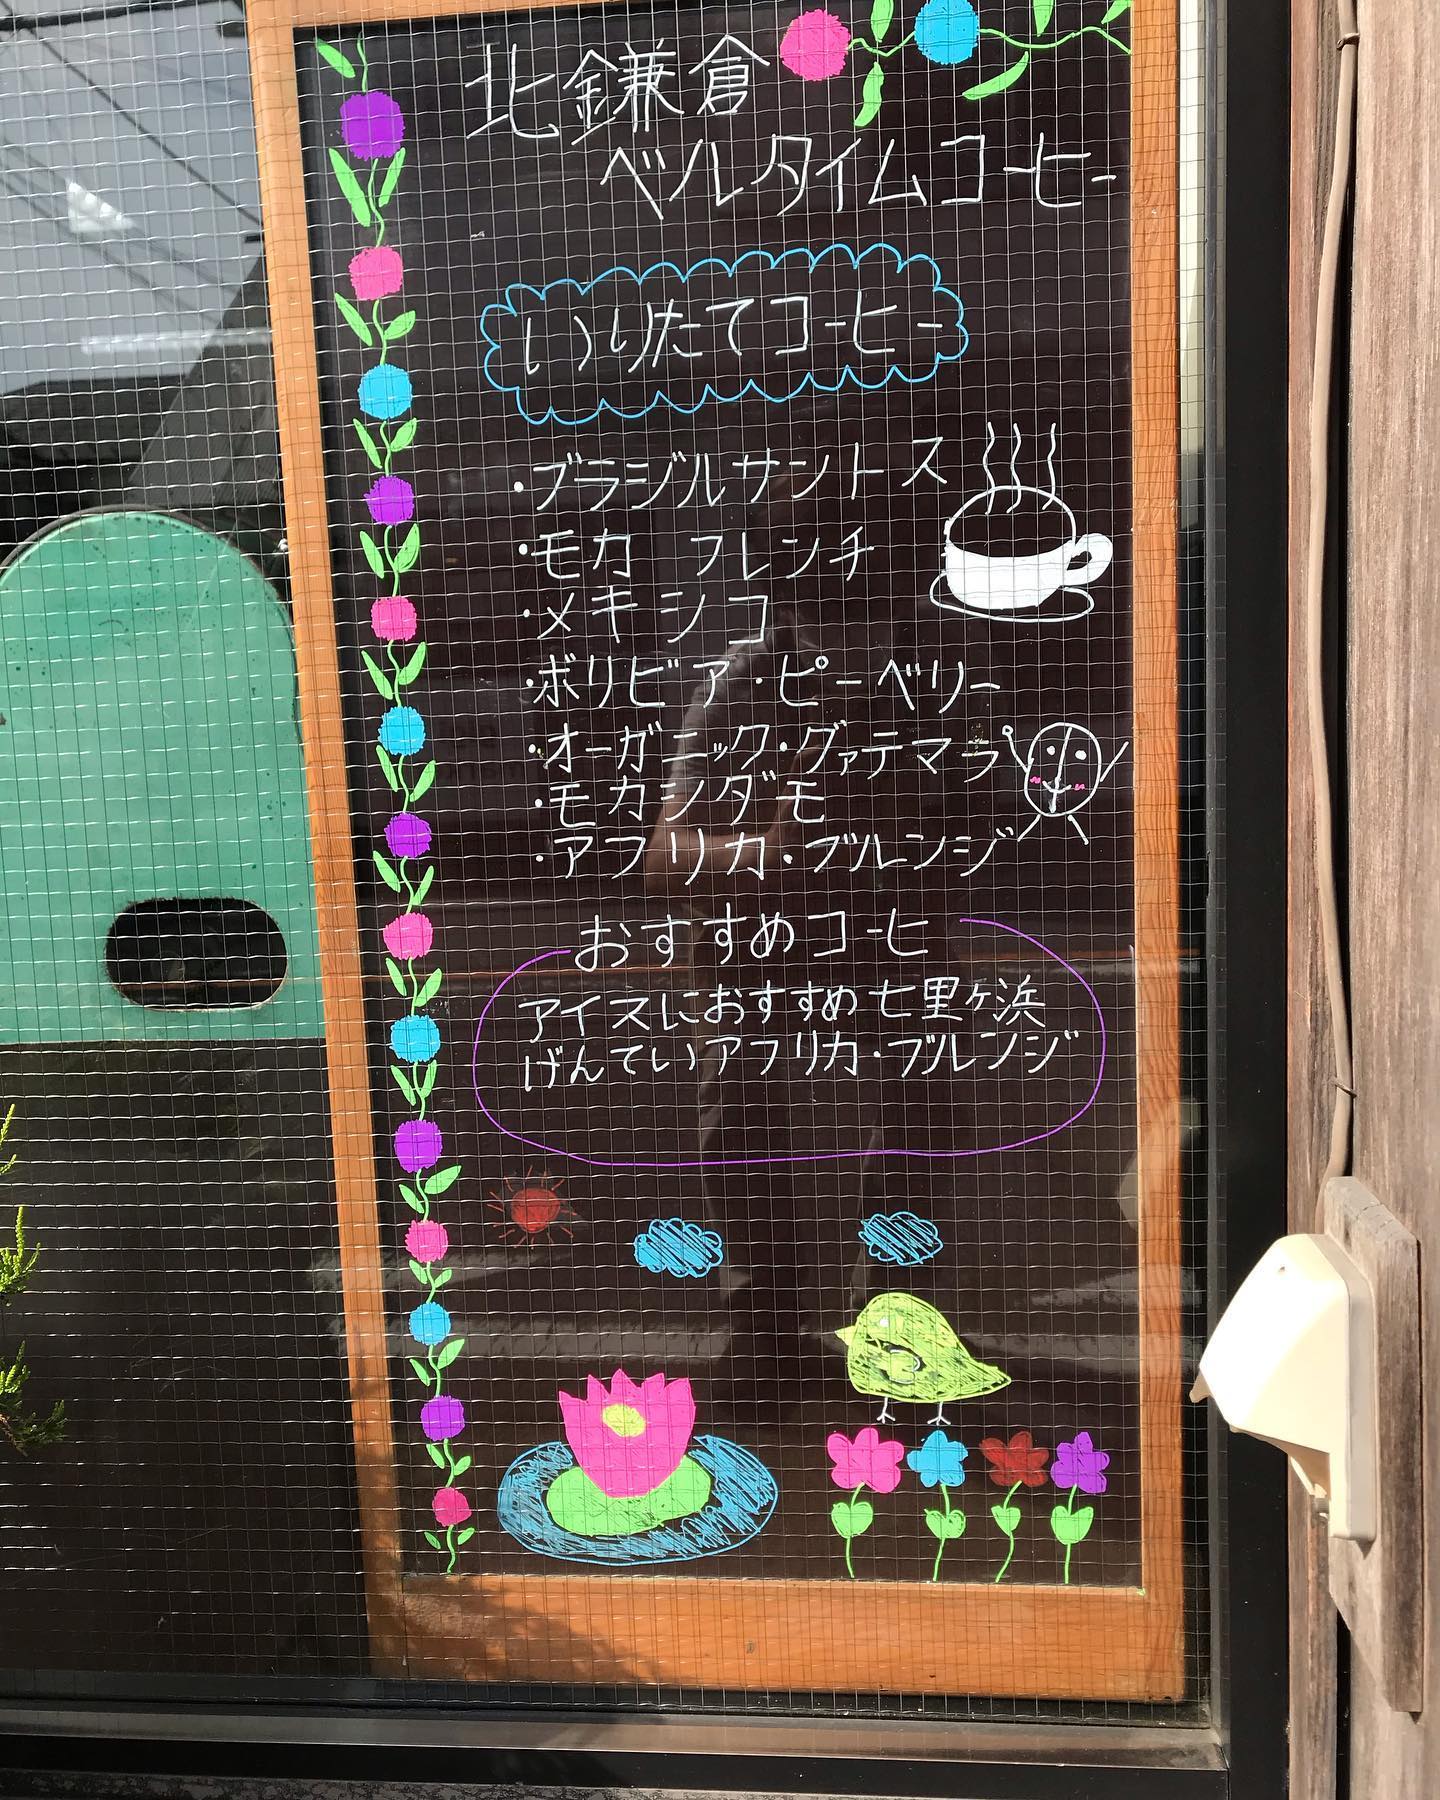 北鎌倉
ベルタイムコーヒー
いりたてコーヒー
・ブラジルサントス
・モカ フレンチ
・メキシコ
・ボリビア・ピーベリー
・オーガニック・グァテマラ
・モカシダモ
・アフリカ・ブルンジ
おすすめコーヒ
アイスにおすすめ七里ヶ浜
げんていアフリカ・ブルンジ